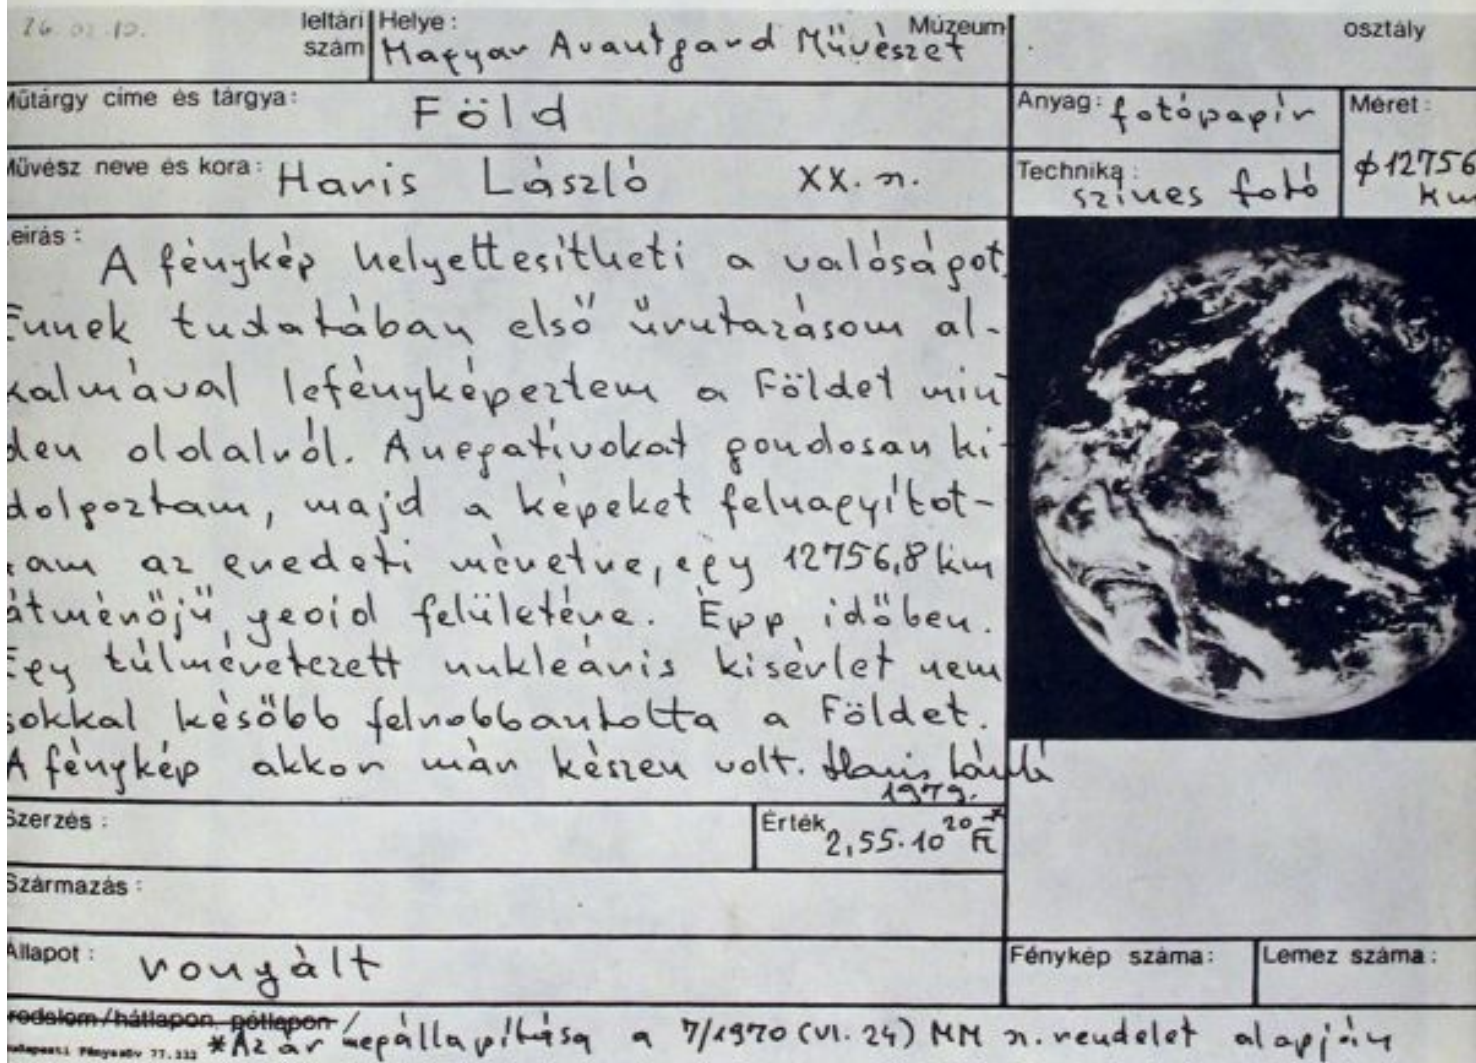 26.02.10. leltári szám Helye: Magyar Avantgard Művészet Múzeum osztály
Műtárgy címe és tárgya: Föld Anyag: fotópapír Méret:
Művész neve és kora: Haris László XX. sz. Technika: színes fotó ϕ12756 km
Leírás:
A fénykép helyettesítheti a valóságot.
Ennek tudatában első űrutazásom al-
kalmával lefényképeztem a Földet min
den oldalról. A negatívokat gondosan ki-
dolgoztam, majd a képeket felnagyítot-
tam az eredeti méretre, egy 12756,8 km
átmérőjű geoid felületére. Épp időben.
Egy túlméretezett nukleáris kísérlet nem
sokkal később felrobbantotta a Földet.
A fénykép akkor már készen volt. Haris László
1979.
Szerzés: Érték 2,55·10²⁰ Ft*
Származás:
Állapot: rongált Fénykép száma: Lemez száma:
Irodalom/hátlapon, pótlapon/
Budapesti Fénysáv 77.332 *Az ár megállapítása a 7/1970 (VI. 24) MM sz. rendelet alapján